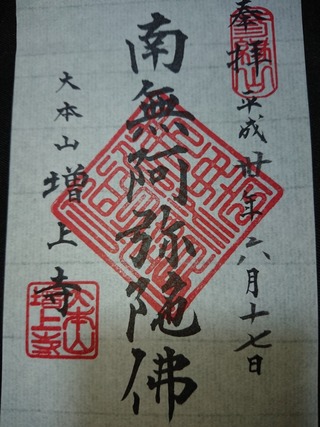 奉拝
平成廿年六月十七日
南無阿弥陀佛
大本山増上寺
大本山
増上寺